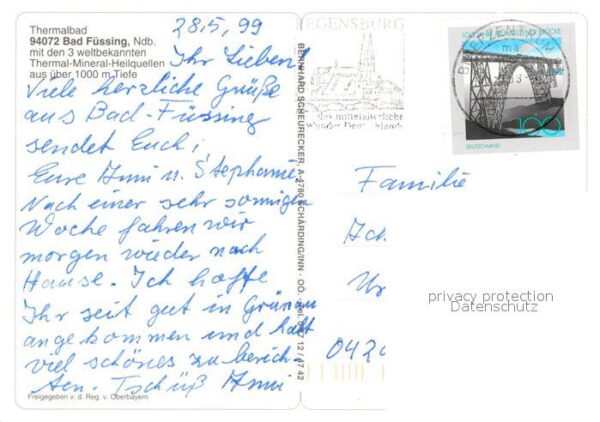 Thermalbad
94072 Bad Füssing, Ndb.
mit den 3 weltbekannten
Thermal-Mineral-Heilquellen
aus über 1000 m Tiefe
28.5.99
Ihr Lieben!
Viele herzliche Grüße
aus Bad-Füssing
sendet Euch,
Eure Anni u. Stephanie.
Nach einer sehr sonnigen
Woche fahren wir
morgen wieder nach
Hause. Ich hoffe
Ihr seit gut in Grünau
angekommen und habt
viel schönes zu berich-
ten. Tschüß Anni
Freigegeben v. d. Reg. v. Oberbayern
BERNHARD SCHEURECKER, A-4780 SCHÄRDING/INN - OÖ.
EGENSBURG
das mittelalterliche
Wunder Deutschlands
BRIEFZENTRUM
100
DEUTSCHLAND
Familie
Ach
Ur
042
privacy protection
Datenschutz